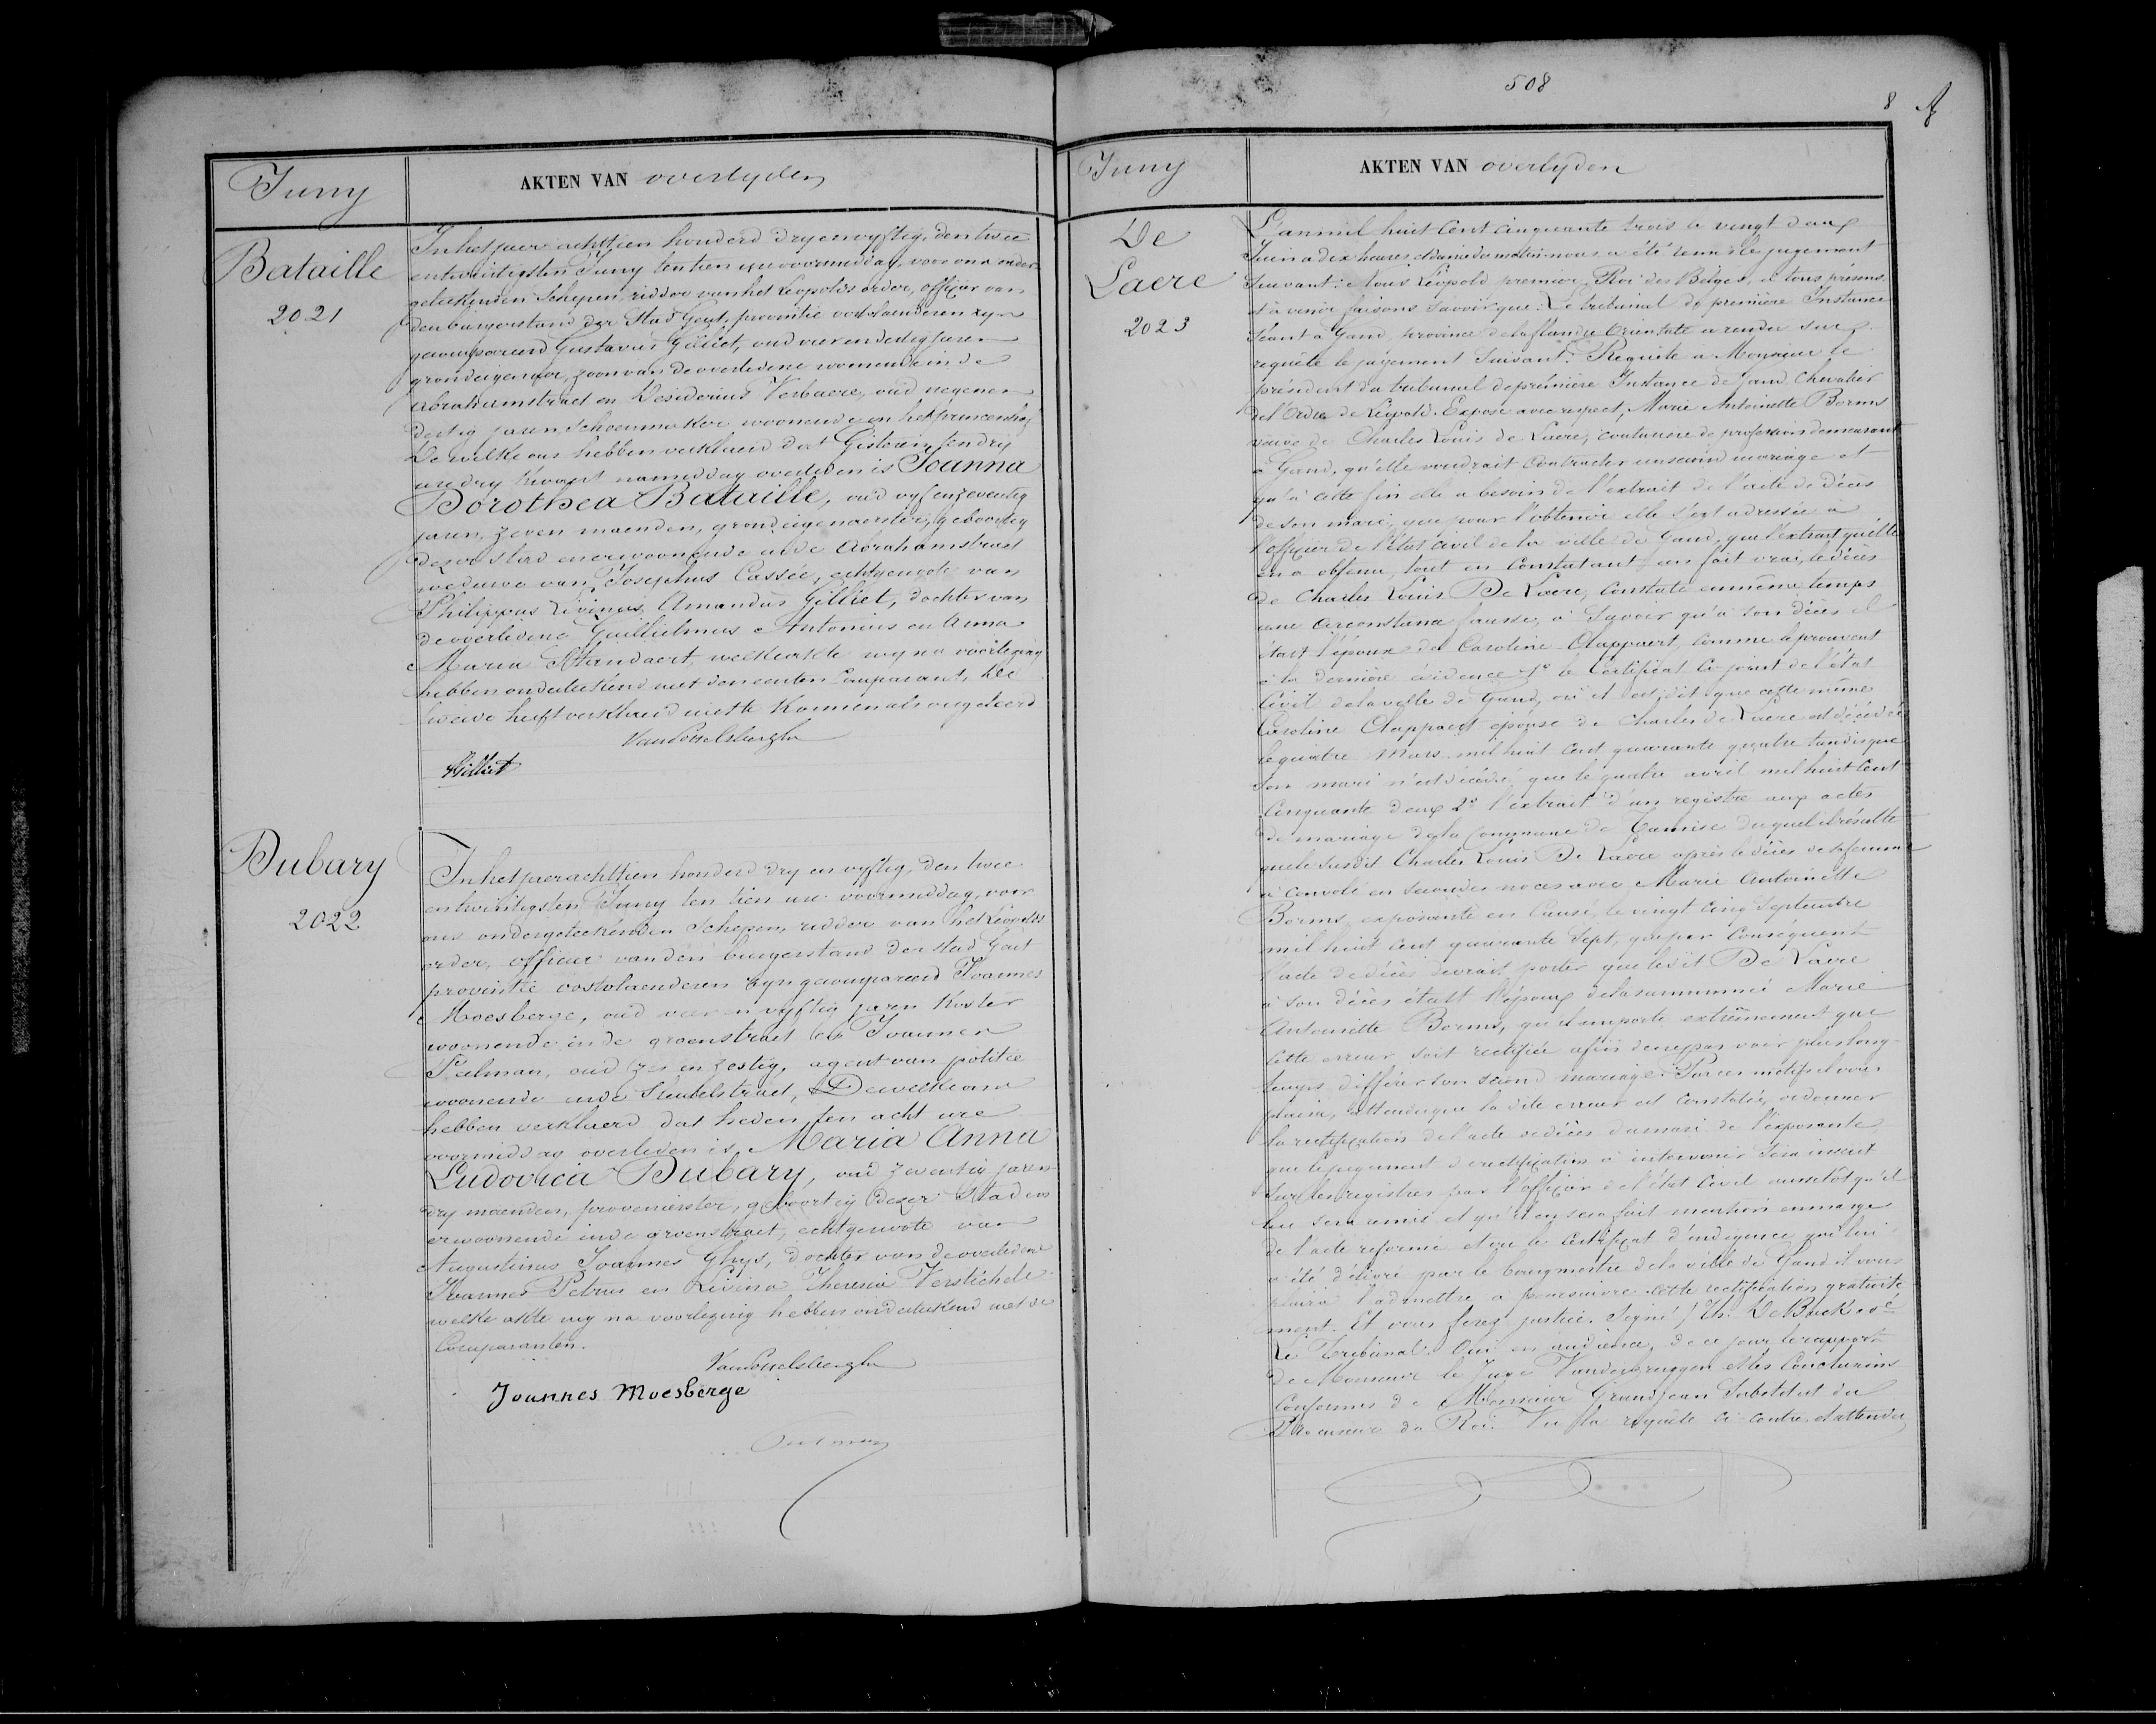 Juny
AKTEN VAN overlyden
Bataille
2021
In het jaer achttien honderd dry en vyftig, den twee
en twintigsten Juny ten tien ure voormiddag, voor ons onder-
geteekenden Schepen, ridder van het Leopolds order, officier van
den burgerstand der Stad Gent, provintie oostvlaenderen zyn
gecompareerd Gustavus Gilliet, oud vier en dertig jaren
grondeigenaer, zoon van de overledene woonende in de
Abrahamstraet en Desiderius Verbaere, oud negen en
dertig jaren, Schoenmaker woonende in het prinsenhof
De welke ons hebben verklaerd dat Gisteren ten dry
ure dry kwaert namiddag overleden is Joanna
Dorothea Bataille, oud vyf en zeventig
jaren, zeven maenden, grondeigenaerster, geboortig
dezer Stad en er woonende in de Abrahamstraet
weduwe van Josephus Cassée, echtgenoote van
Philippus Livinus Amandus Gilliet, dochter van
de overledene Guillielmus Antonius en Anna
Maria Standaert, welke akte wy na voorlezing
hebben onderteekend met den eersten Comparant, de
tweede heeft verklaerd niet te konnen als ongeleerd
VanPottelsberghe
Gilliet
Dubary
2022
In het jaer achttien honderd dry en vyftig, den twee
en twintigsten Juny ten tien ure voormiddag, voor
ons ondergeteekenden Schepen, ridder van het Leopolds
order, officier van den burgerstand der stad Gent
provintie oostvlaenderen zyn gecompareerd Joannes
Moesberge, oud vier en vyftig jaren Koster
woonende in de groenstraet en Joannes
Peelman, oud zes en zestig, agent van politie
woonende in de Sleutelstraet, De welke ons
hebben verklaerd dat heden ten acht ure
voormiddag overleden is Maria Anna
Ludovica Dubary, oud zeventig jaren
dry maenden, provenierster, geboortig dezer Stad en
er woonende in de groenstraet, echtgenoote van
Augustinus Joannes Ghys, dochter van de overledene
Joannes Petrus en Livina Theresia Verstichele
welke akte wy na voorlezing hebben onderteekend met de
Comparanten.
VanPottelsberghe
Joannes Moesberge
508
8
Juny
AKTEN VAN overlyden
De
Laere
2023
L'an mil huit Cent cinquante trois le vingt deux
Juin a dix heures et demie du matin nous a été remis le jugement
Suivant: Nous Léopold premier, Roi des Belges, à tous présens
et à venir faisons Savoir que: Le tribunal de première Instance
Séant à Gand, province de la flandre Orientale a rendu sur
requête le jugement Suivant: Requête à Monsieur le
président du tribunal de première Instance de Gand Chevalier
de l'Ordre de Léopold. Expose avec respect, Marie Antoinette Borms
veuve de Charles Louis de Laere, couturière de profession demeurant
à Gand, qu'elle voudrait Contracter un second mariage et
qu'à cette fin elle a besoin de l'extrait de l'acte de Décès
de son mari, que pour l'obtenir elle s'est adressée à
l'officier de l'état civil de la ville de Gand, que l'extrait qu'elle
en a obtenu, tout en Constatant un fait vrai, le décès
de Charles Louis De Laere, Constate en même temps
une circonstance fausse, à Savoir qu'à son décès il
était l'époux de Caroline Clappaert, comme le prouvent
à la dernière évidence 1º le Certificat Ci-joint de l'état
Civil de la ville de Gand, où il est dit que cette même
Caroline Clappaert épouse de Charles de Laere est décédée
le quatre Mars mil huit Cent quarante quatre tandis que
Son mari n'est décédé que le quatre avril mil huit Cent
Cinquante deux 2º l'extrait d'un registre aux actes
de mariage de la Commune de Tamise duquel il résulte
que le susdit Charles Louis De Laere après le décès de sa femme
à convolé en secondes noces avec Marie Antoinette
Borms, exposante en Cause, le vingt Cinq Septembre
mil huit Cent quarante Sept, que par Conséquent
l'acte de décès devrait porter que ledit De Laere
à son décès était l'époux de la surnommée Marie
Antoinette Borms, qu'il importe extrêmement que
Cette erreur soit rectifiée afin de ne pas voir plus long-
temps différer son second mariage. Par ces motifs il vous
plaira, attendu que la dite erreur est Constatée, ordonner
la rectification de l'acte de décès du mari de l'exposante
que le jugement de rectification à intervenir Sera inscrit
Sur les registres par l'officier de l'état Civil aussitôt qu'il
lui sera remis et qu'il en sera fait mention en marge
de l'acte réformé et vu le Certificat d'indigence qui lui
a été délivré par le bourgmestre de la ville de Gand il vous
plaira l'admettre à poursuivre cette rectification gratuite
ment. Et vous ferez justice. Signé De Buck avé
Le Tribunal: Ouï en audience, de ce jour, le rapport
de Monsieur le Juge Vanderbruggen et les Conclusions
Conformes de Monsieur Grandjean Substitut du
Procureur du Roi. Vu la requête ci-contre, et attendu